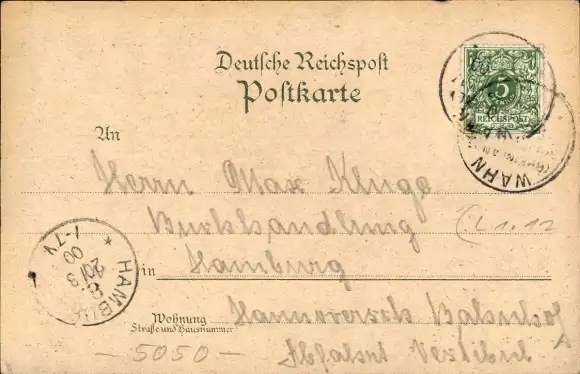 Deutsche Reichspost
Postkarte
5
REICHSPOST
WAHN
An
Herrn Max Kluge
Buchhandlung
(L 1.12
in Hamburg
HAMBU
1-7V
00
Wohnung
Straße und Hausnummer
Hannoversch Bahnhof
Abfahrt Vestibul
- 5050 -